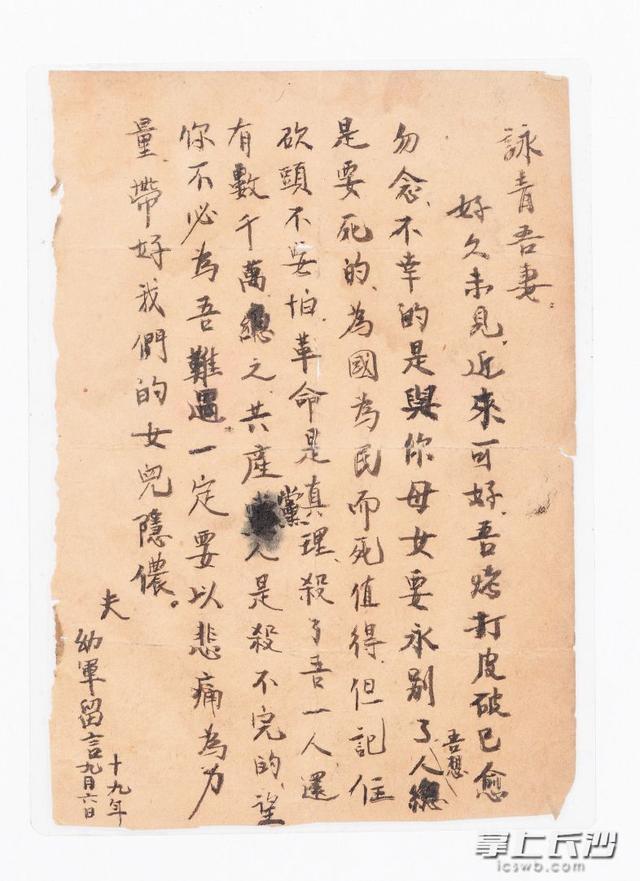 詠青吾妻.
好久未見,近來可好.吾烤打皮破已愈
勿念,不幸的是與你母女要永别了吾想人總
是要死的,為國為民而死值得.但記住
砍頭不要怕.革命是真理,殺了吾一人還
有數千萬總之共產黨人是殺不完的,望
你不必為吾難過一定要以悲痛為力
量,帶好我們的女兒隱儂。
夫
幼軍留言九月六日
十九年
掌上长沙
icswb.com